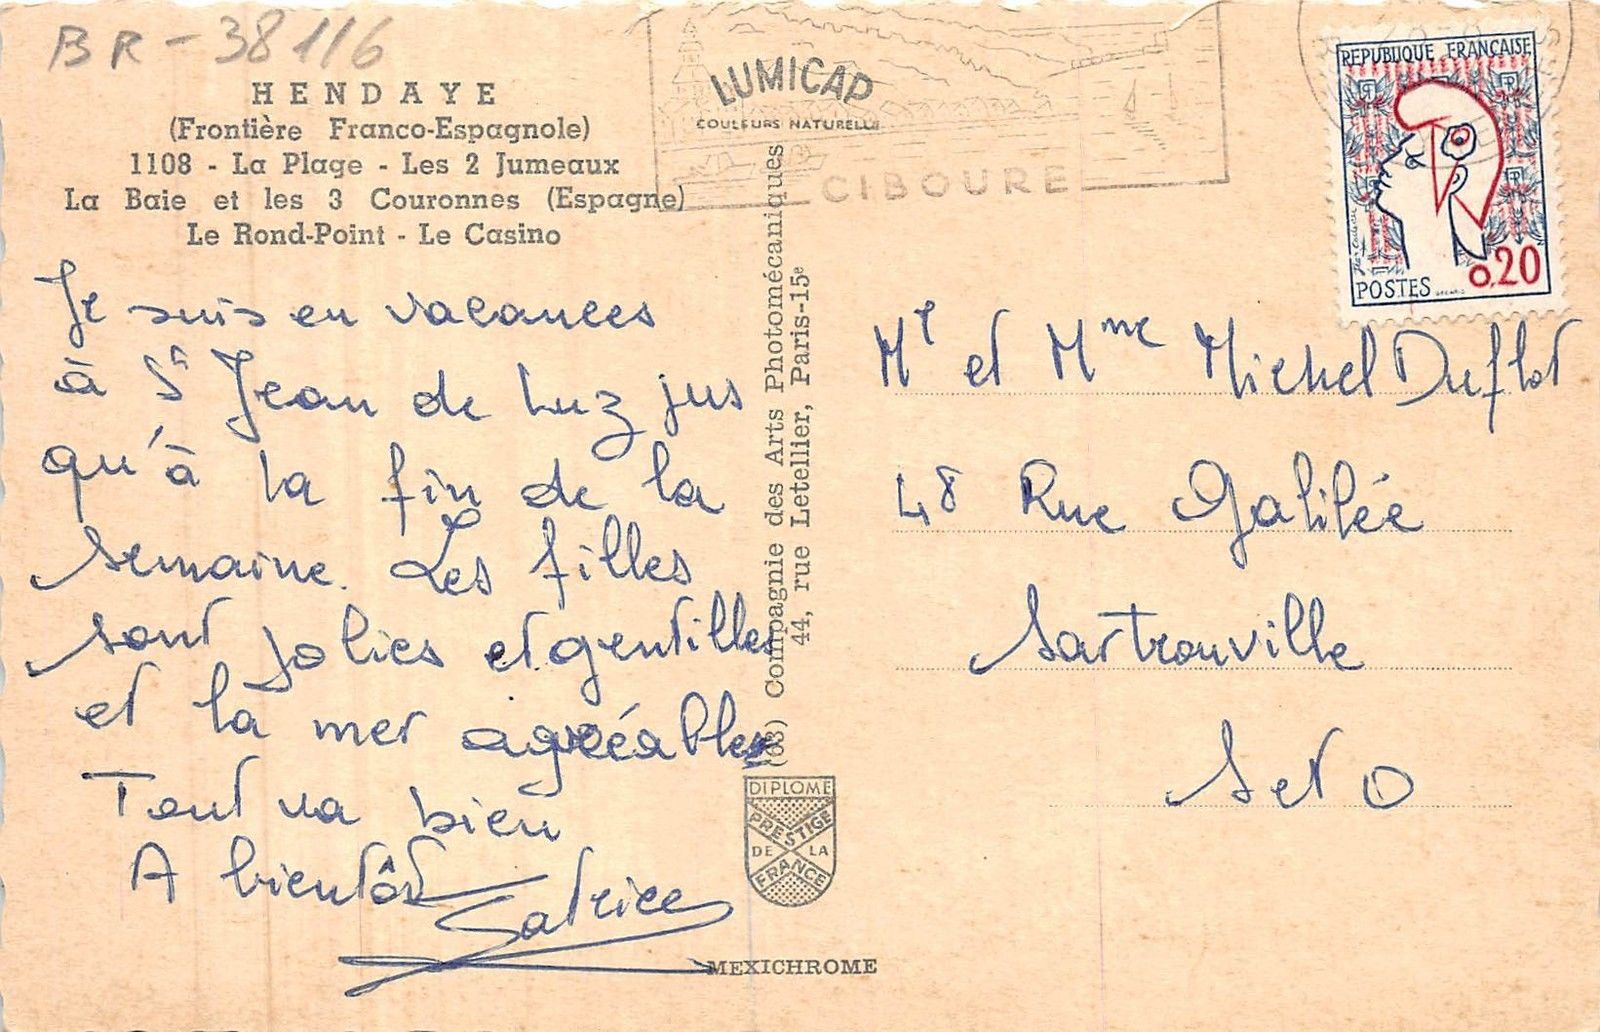 BR-38116
HENDAYE
(Frontière Franco-Espagnole)
1108 - La Plage - Les 2 Jumeaux
La Baie et les 3 Couronnes (Espagne)
Le Rond-Point - Le Casino
Je suis en vacances
à St Jean de Luz jus
qu'à la fin de la
semaine. Les filles
sont jolies et gentilles
et la mer agréable
Tout va bien
A bientôt
LUMICAP
COULEURS NATURELLES
CIBOURE
(63) Compagnie des Arts Photomécaniques
44, rue Letellier, Paris-15e
DIPLOME
PRESTIGE
DE LA
FRANCE
MEXICHROME
REPUBLIQUE FRANÇAISE
POSTES
0,20
Mr et Mme Michel Duflot
48 Rue Galilée
Sartrouville
Set O